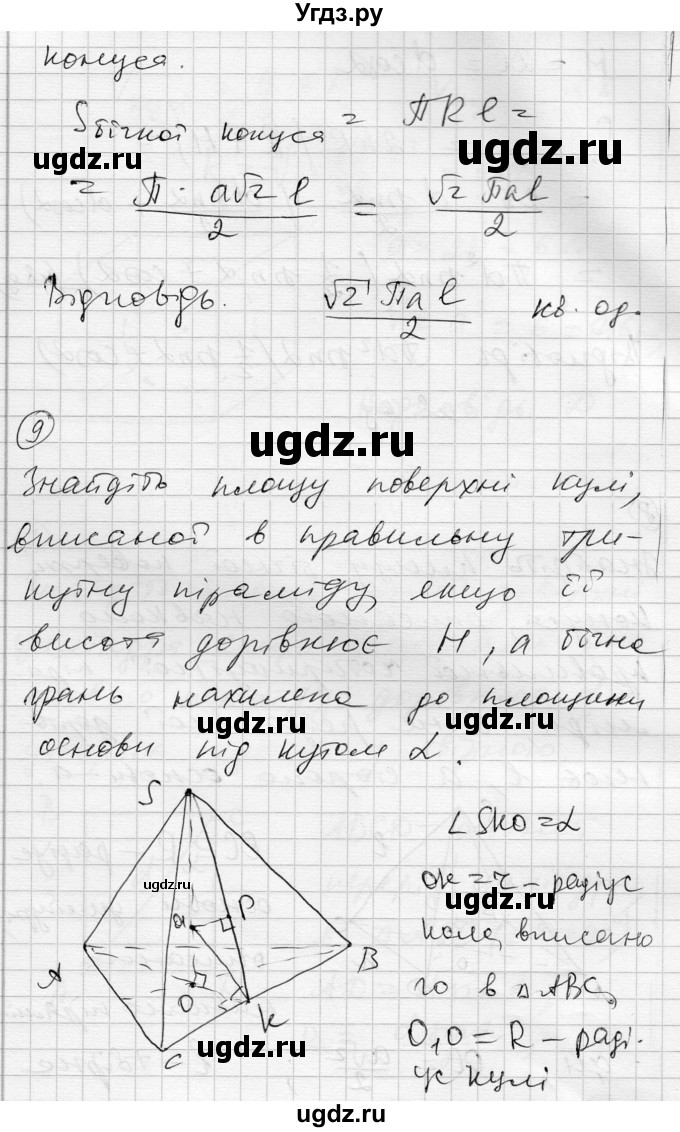 Угдз.ру
конуся.
Sбічної конуся = ПRl =
ugdz.ru
ugdz.ru
= П · a√2 l / 2 = √2 Пal / 2
Відповідь. √2 Пal / 2 кв. од.
ugdz.ru
9
Знайдіть площу поверхні кулі,
вписаної в правильну три-
кутну піраміду, якщо її
висота дорівнює H, а бічна
грань нахилена до площини
ugdz.ru
ugdz.ru
основи під кутом α.
S
∠SKO = α
ugdz.ru
ugdz.ru
OK = r – радіус
P
кола, вписано
A
B
го в △ABC,
O
K
O₁O = R – раді-
ugdz.ru
ugdz.ru
C
ус кулі
ugdz.ru